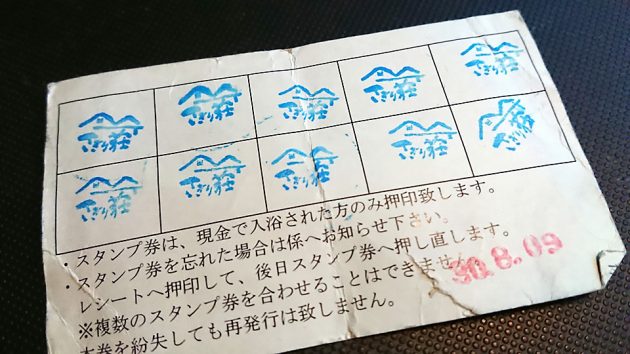 さぎり荘 さぎり荘 さぎり荘 さぎり荘 さぎり荘
さぎり荘 さぎり荘 さぎり荘 さぎり荘 さぎり荘
・スタンプ券は、現金で入浴された方のみ押印致します。
・スタンプ券を忘れた場合は係へお知らせ下さい。
レシートへ押印して、後日スタンプ券へ押し直します。
※複数のスタンプ券を合わせることはできません。
本券を紛失しても再発行は致しません。
30.8.09